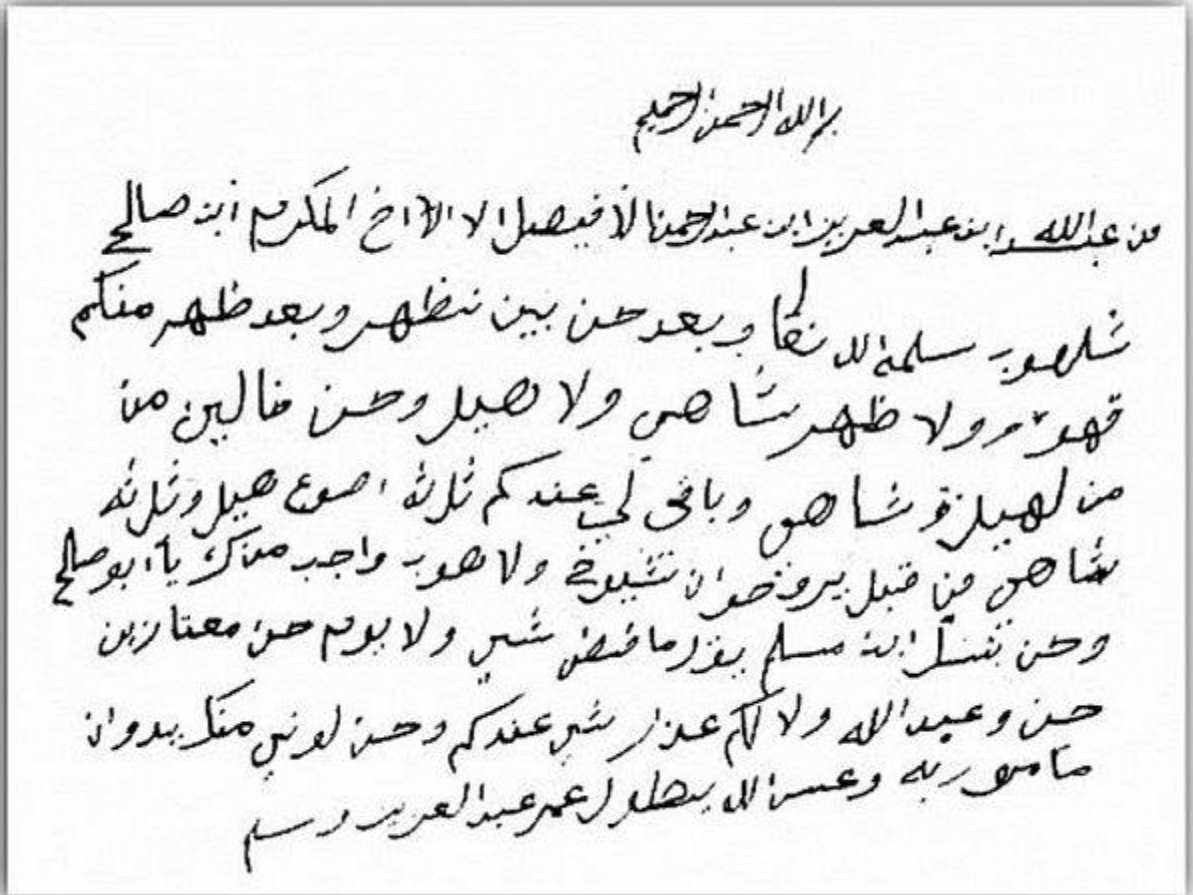 بسم الله الرحمن الرحيم
من عبدالله ابن عبدالعزيز ابن عبدالرحمنا لأ فيصل الا الاخ المكرم ابن صالح
شلهوب سلمه الله وبعد حن بين نظهر وبعد ظهر منكم
قهوه ولا ظهر شاهي ولا هيل وحن خالين من
من لهيل وشاهي وباقي لي عندكم ثلاثة اصوع هيل وثلاثه
شاهي من قبل ولا هوب واجب منك يا ابو صالح
وحن ابن مسلم ما قبض شي ولا يوم حن معتازين
حن وعبدالله ولا لكم عذر شي عندكم وحن لوني منكر بدوان
ماموربه وعسى الله يطول عمر عبدالعزيز وسلم